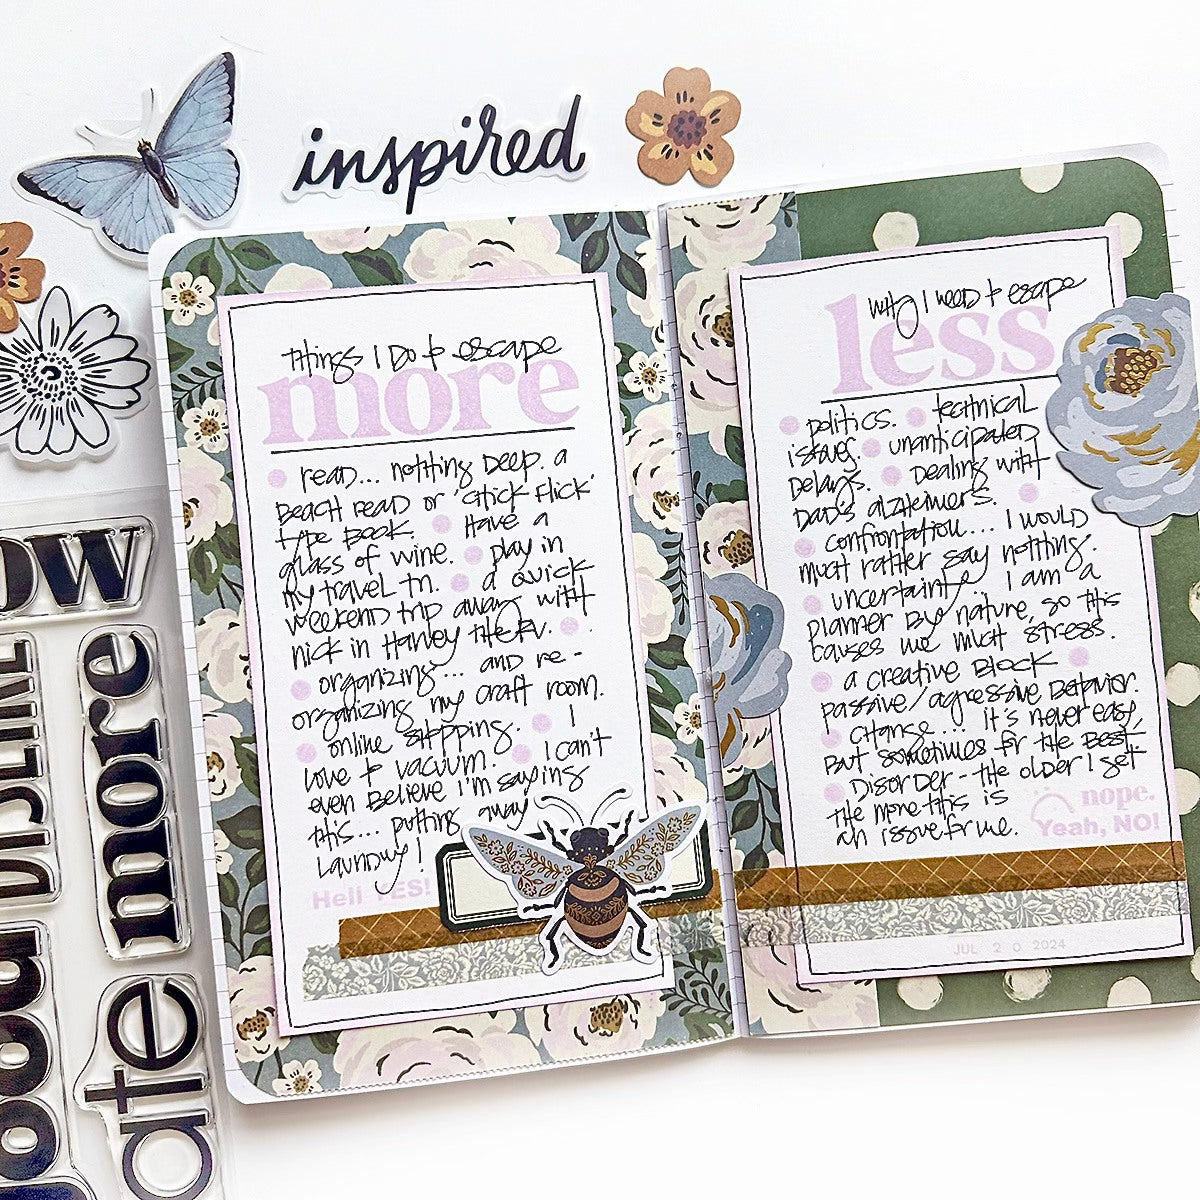 inspired
things I do to escape
more
read... nothing deep. a
beach read or 'chick flick'
type book. have a
glass of wine. play in
my travel tn. a quick
weekend trip away with
nick in Harvey the RV.
organizing... and re-
organizing my craft room.
online shopping. I
love to vacuum. I can't
even believe I'm saying
this... putting away
laundry!
Hell YES!
why I need to escape
less
politics. technical
issues. unanticipated
delays. Dealing with
Dad's alzheimers.
confrontation... I would
much rather say nothing.
uncertainty... I am a
planner by nature, so this
causes me much stress.
a creative block
passive/agressive behavior.
change... it's never easy,
but sometimes for the best.
Disorder - the older I get
the more this is
an issue for me.
nope.
Yeah, NO!
JUL 20 2024
ow
DISLIKE
more
ate